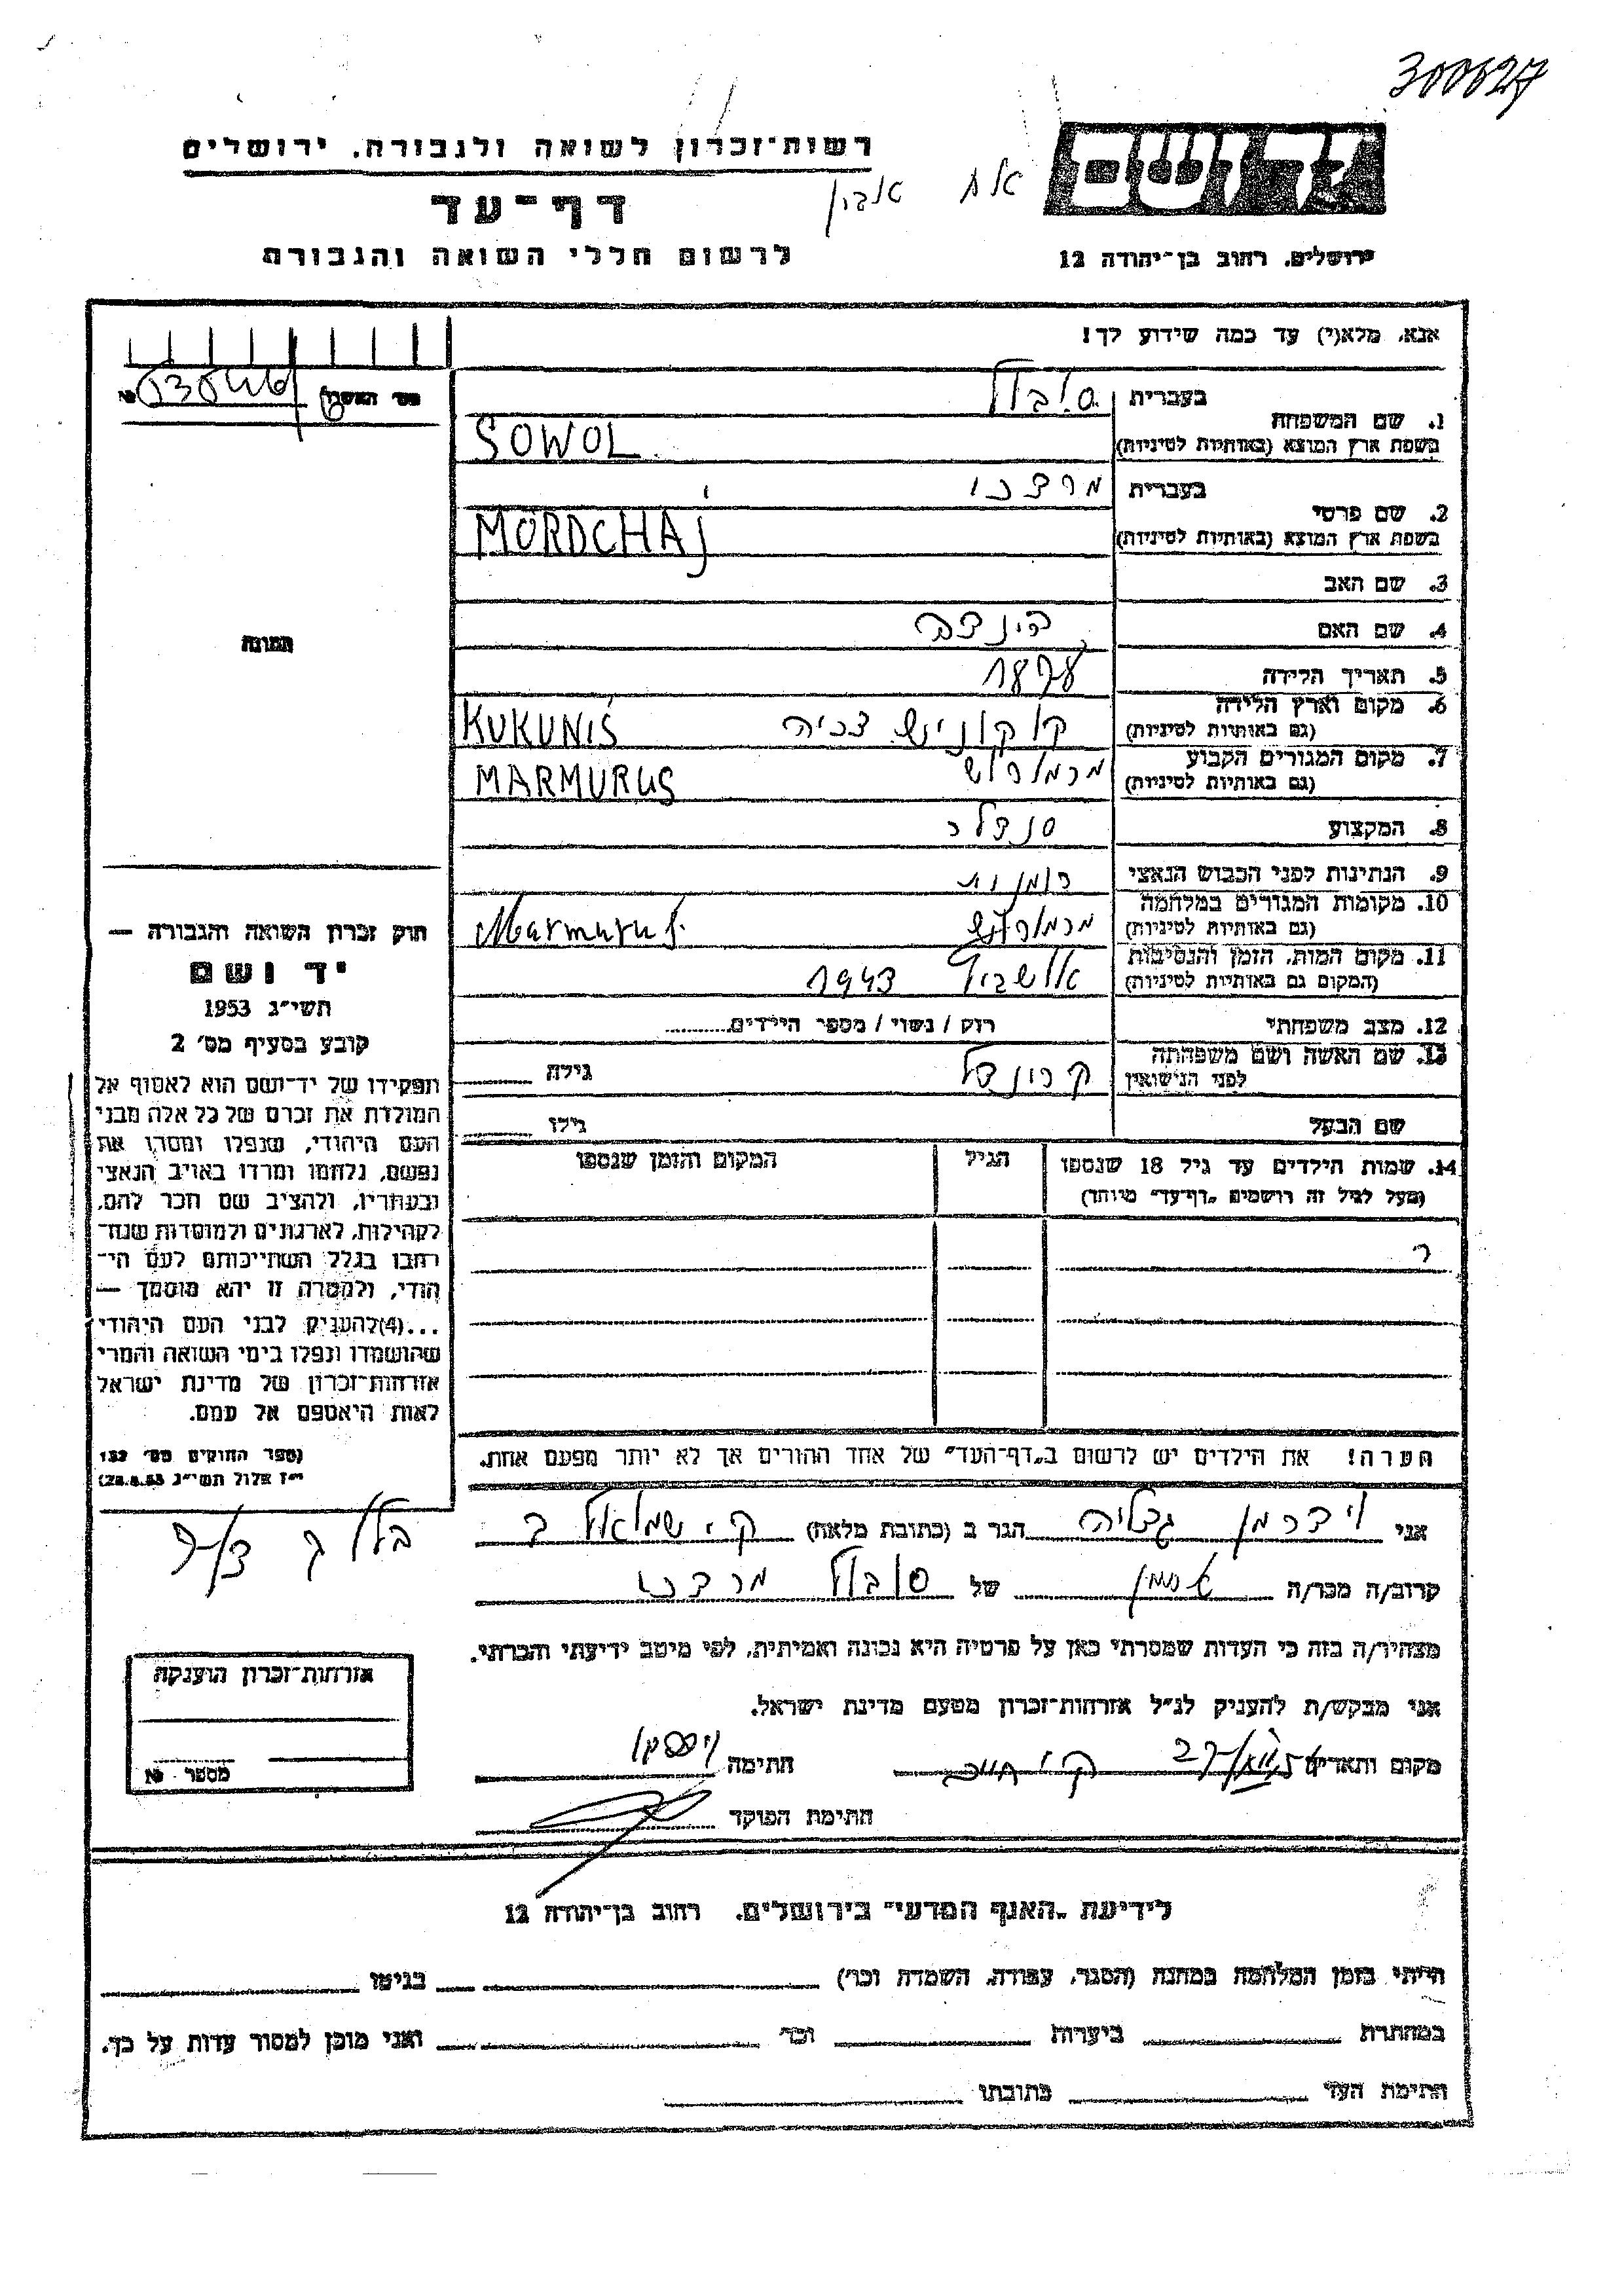 300627
רשות־זכרון לשואה ולגבורה, ירושלים
דף־עד
לרשום חללי השואה והגבורה
ירושלים, רחוב בן־יהודה 12
אנא, מלא(י) עד כמה שידוע לך!
1. שם המשפחה
בעברית סובול
בשפת ארץ המוצא (באותיות לטיניות) SOWOL
2. שם פרטי
בעברית מרדכי
בשפת ארץ המוצא (באותיות לטיניות) MORDCHAJ
3. שם האב
4. שם האם הינדה
5. תאריך הלידה 1878
6. מקום וארץ הלידה
(גם באותיות לטיניות) KUKUNIS
7. מקום המגורים הקבוע
(גם באותיות לטיניות) מרמורש MARMURUS
8. המקצוע סנדלר
9. הנתינות לפני הכבוש הנאצי
10. מקומות המגורים במלחמה
(גם באותיות לטיניות) מרמורש Marmarus
11. מקום המות, הזמן והנסיבות
(המקום גם באותיות לטיניות) אושביץ 1943
12. מצב משפחתי רווק / נשוי / מספר הילדים
13. שם האשה ושם משפחתה
לפני הנישואין גילה
שם הבעל גילו
14. שמות הילדים עד גיל 18 שנספו הגיל המקום והזמן שנספו
(מעל לגיל זה רושמים „דף־עד" מיוחד)
הערה! את הילדים יש לרשום ב„דף־העד" של אחד ההורים אך לא יותר מפעם אחת.
אני וידרמן גדליה הגר ב (כתובת מלאה) ק. שמואל ב
קרוב/ה מכר/ה של סובול מרדכי
מצהיר/ה בזה כי העדות שמסרתי כאן על פרטיה היא נכונה ואמיתית, לפי מיטב ידיעתי והכרתי.
אני מבקש/ת להעניק לנ"ל אזרחות־זכרון מטעם מדינת ישראל.
מקום ותאריך חתימה
חתימת הפוקד
מס' האשכול №
תמונה
חוק זכרון השואה והגבורה —
יד ושם
תשי"ג 1953
קובע בסעיף מס' 2
תפקידו של יד־ושם הוא לאסוף אל
המולדת את זכרם של כל אלה מבני
העם היהודי, שנפלו ומסרו את
נפשם, נלחמו ומרדו באויב הנאצי
ובעוזריו, ולהציב שם וזכר להם,
לקהילות, לארגונים ולמוסדות שנח־
רחבו בגלל השתייכותם לעם הי־
הודי, ולמטרה זו יהא מוסמך —
...(4)להעניק לבני העם היהודי
שהושמדו ונפלו בימי השואה והמרי
אזרחות־זכרון של מדינת ישראל
לאות היאספם אל עמם.
(ספר החוקים מס' 132
י"ז אלול תשי"ג 28.8.53)
אזרחות־זכרון הוענקה
מספר №
לידיעת „האגף המדעי" בירושלים, רחוב בן־יהודה 12
הייתי בזמן המלחמה במחנה (הסגר, עבודה, השמדה וכו') בגיטו
במחתרת ביערות וכו' ואני מוכן למסור עדות על כך.
חתימת העד כתובתו